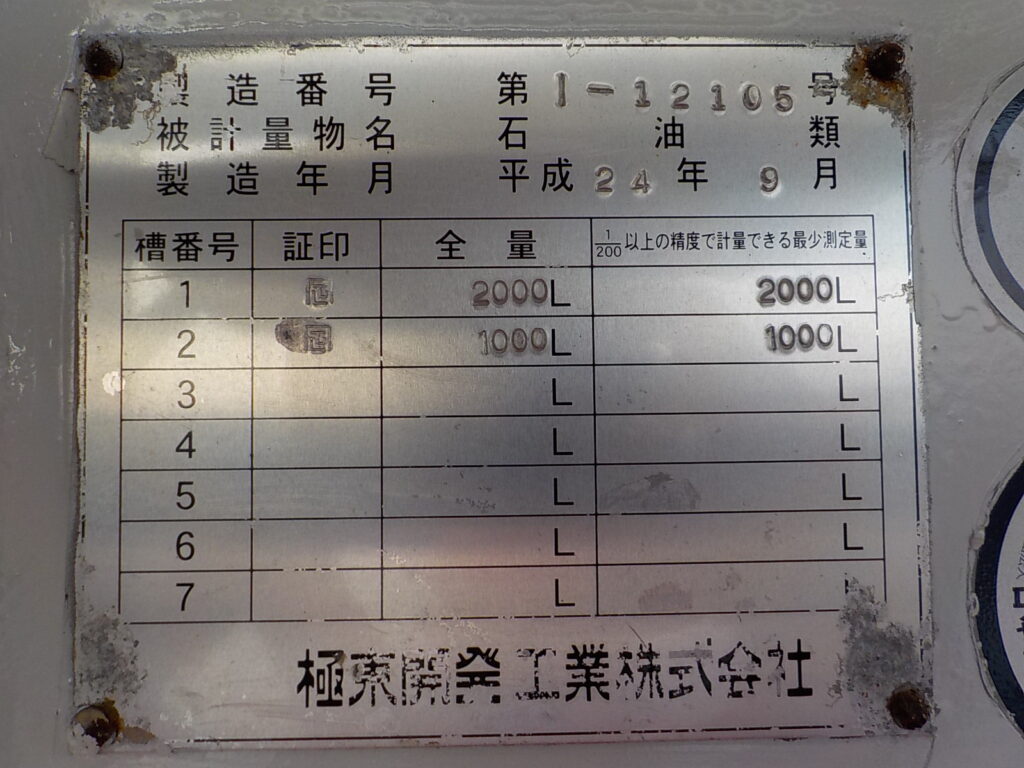 製造番号 第1-12105号
被計量物名 石油類
製造年月 平成24年9月
槽番号 証印 全量 1/200以上の精度で計量できる最少測定量
1 2000L 2000L
2 1000L 1000L
3 L L
4 L L
5 L L
6 L L
7 L
極東開発工業株式会社